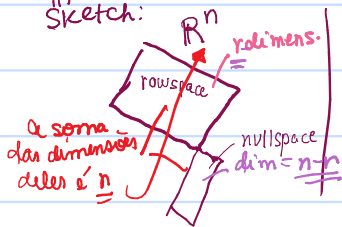 Sketch:
Rⁿ
r dimens.
rowspace
a soma
das dimensões
deles é n
nullspace
dim = n-r